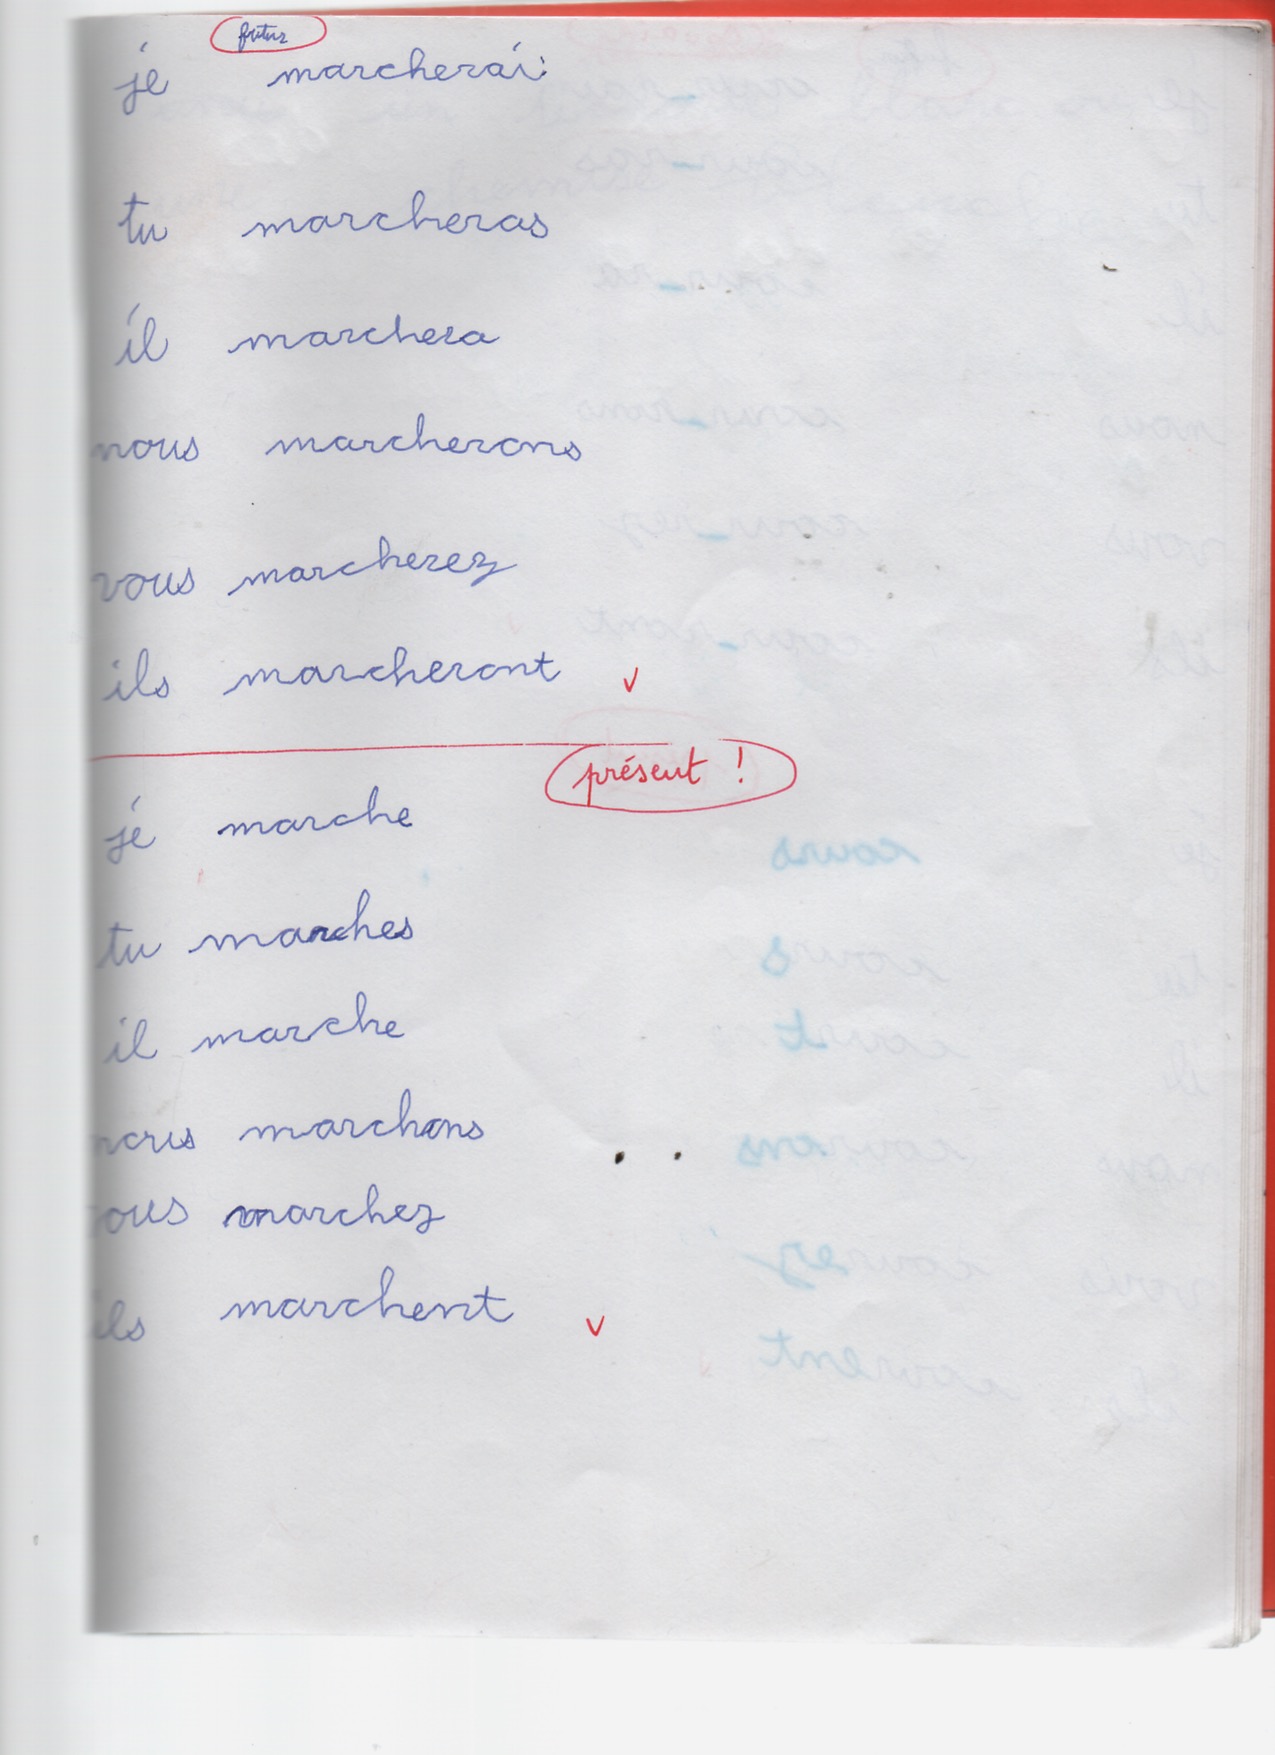 futur
je marcherai
tu marcheras
il marchera
nous marcherons
vous marcherez
ils marcheront
présent !
je marche
tu marches
il marche
nous marchons
vous marchez
ils marchent